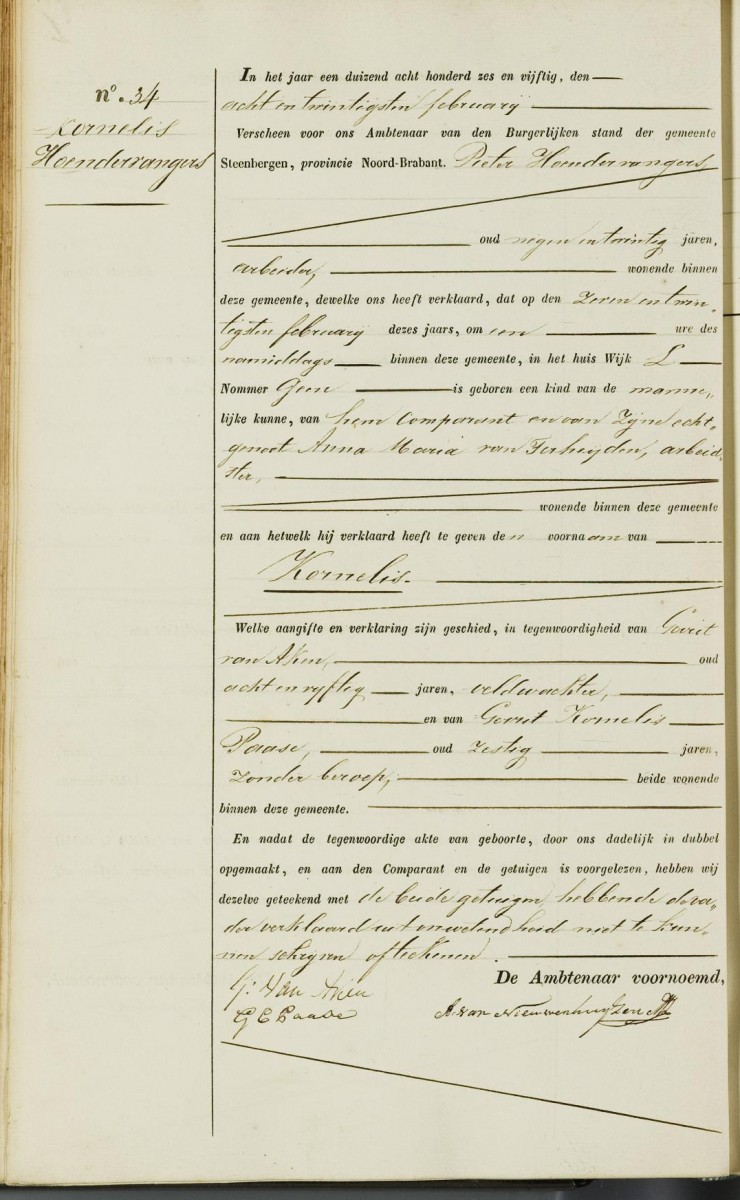 nº. 34
Kornelis
Hoendervangers
In het jaar een duizend acht honderd zes en vijftig, den
acht en twintigsten februarij
Verscheen voor ons Ambtenaar van den Burgerlijken stand der gemeente
Steenbergen, provincie Noord-Brabant. Pieter Hoendervangers,
oud negen en twintig jaren,
arbeider, wonende binnen
deze gemeente, dewelke ons heeft verklaard, dat op den Zeven en twin„
tigsten februarij dezes jaars, om een ure des
namiddags binnen deze gemeente, in het huis Wijk L
Nommer Geen is geboren een kind van de manne„
lijke kunne, van hem Comparant en van Zijne echt„
genoot Anna Maria van Terheijden, arbeid„
ster,
wonende binnen deze gemeente
en aan hetwelk hij verklaard heeft te geven den voornaam van
Kornelis.
Welke aangifte en verklaring zijn geschied, in tegenwoordigheid van Gerrit
van Aken, oud
acht en vyftig jaren, veldwachter,
en van Gerrit Kornelis
Paase, oud Zestig jaren,
Zonder beroep, beide wonende
binnen deze gemeente.
En nadat de tegenwoordige akte van geboorte, door ons dadelijk in dubbel
opgemaakt, en aan den Comparant en de getuigen is voorgelezen, hebben wij
dezelve geteekend met de beide getuigen, hebbende de va„
der verklaard uit onwetendheid niet te kun„
nen schryven of teekenen.
De Ambtenaar voornoemd,
G: Van Aken
G C Paase
A. van Nieuwenhuijzen